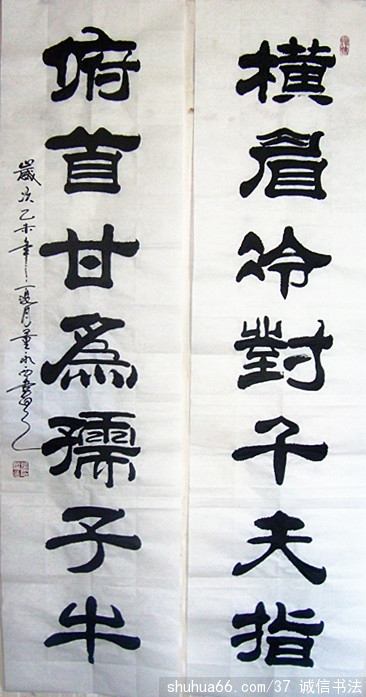 横眉冷對千夫指
俯首甘為孺子牛
歲次乙未年
shuhua66.com/37 诚信书法